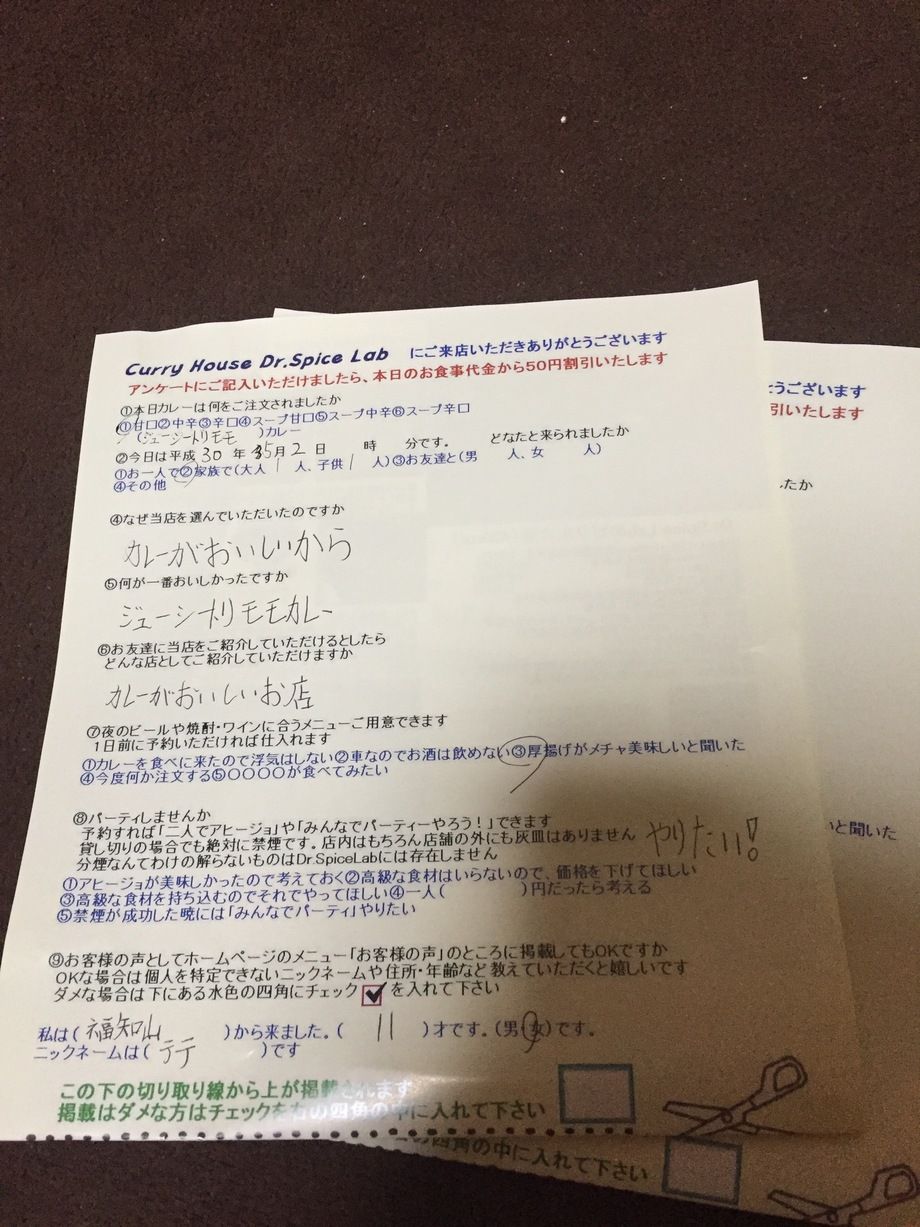 Curry House Dr.Spice Lab にご来店いただきありがとうございます
アンケートにご記入いただけましたら、本日のお食事代金から50円割引いたします
①本日カレーは何をご注文されましたか
①甘口②中辛③辛口④スープ甘口⑤スープ中辛⑥スープ辛口
(ジューシートリモモ )カレー
②今日は平成 30 年 5月 2 日 時 分です。 どなたと来られましたか
①お一人で②家族で(大人 1 人、子供 1 人)③お友達と(男 人、女 人)
④その他
④なぜ当店を選んでいただいたのですか
カレーがおいしいから
⑤何が一番おいしかったですか
ジューシートリモモカレー
⑥お友達に当店をご紹介していただけるとしたら
どんな店としてご紹介していただけますか
カレーがおいしいお店
⑦夜のビールや焼酎・ワインに合うメニューご用意できます
1日前に予約いただければ仕入れます
①カレーを食べに来たので浮気はしない②車なのでお酒は飲めない③厚揚げがメチャ美味しいと聞いた
④今度何か注文する⑤〇〇〇〇が食べてみたい
⑧パーティしませんか
予約すれば「二人でアヒージョ」や「みんなでパーティーやろう!」できます
貸し切りの場合でも絶対に禁煙です。店内はもちろん店舗の外にも灰皿はありません やりたい!
分煙なんてわけの解らないものはDr.SpiceLabには存在しません
①アヒージョが美味しかったので考えておく②高級な食材はいらないので、価格を下げてほしい
③高級な食材を持ち込むのでそれでやってほしい④一人( )円だったら考える
⑤禁煙が成功した暁には「みんなでパーティ」やりたい
⑨お客様の声としてホームページのメニュー「お客様の声」のところに掲載してもOKですか
OKな場合は個人を特定できないニックネームや住所・年齢など教えていただくと嬉しいです
ダメな場合は下にある水色の四角にチェック を入れて下さい
私は( 福知山 )から来ました。( 11 )才です。(男・女)です。
ニックネームは( テテ )です
この下の切り取り線から上が掲載されます
掲載はダメな方はチェックを右の四角の中に入れて下さい
とうございます
引いたします
たか
いと聞いた
の四角の中に入れて下さい